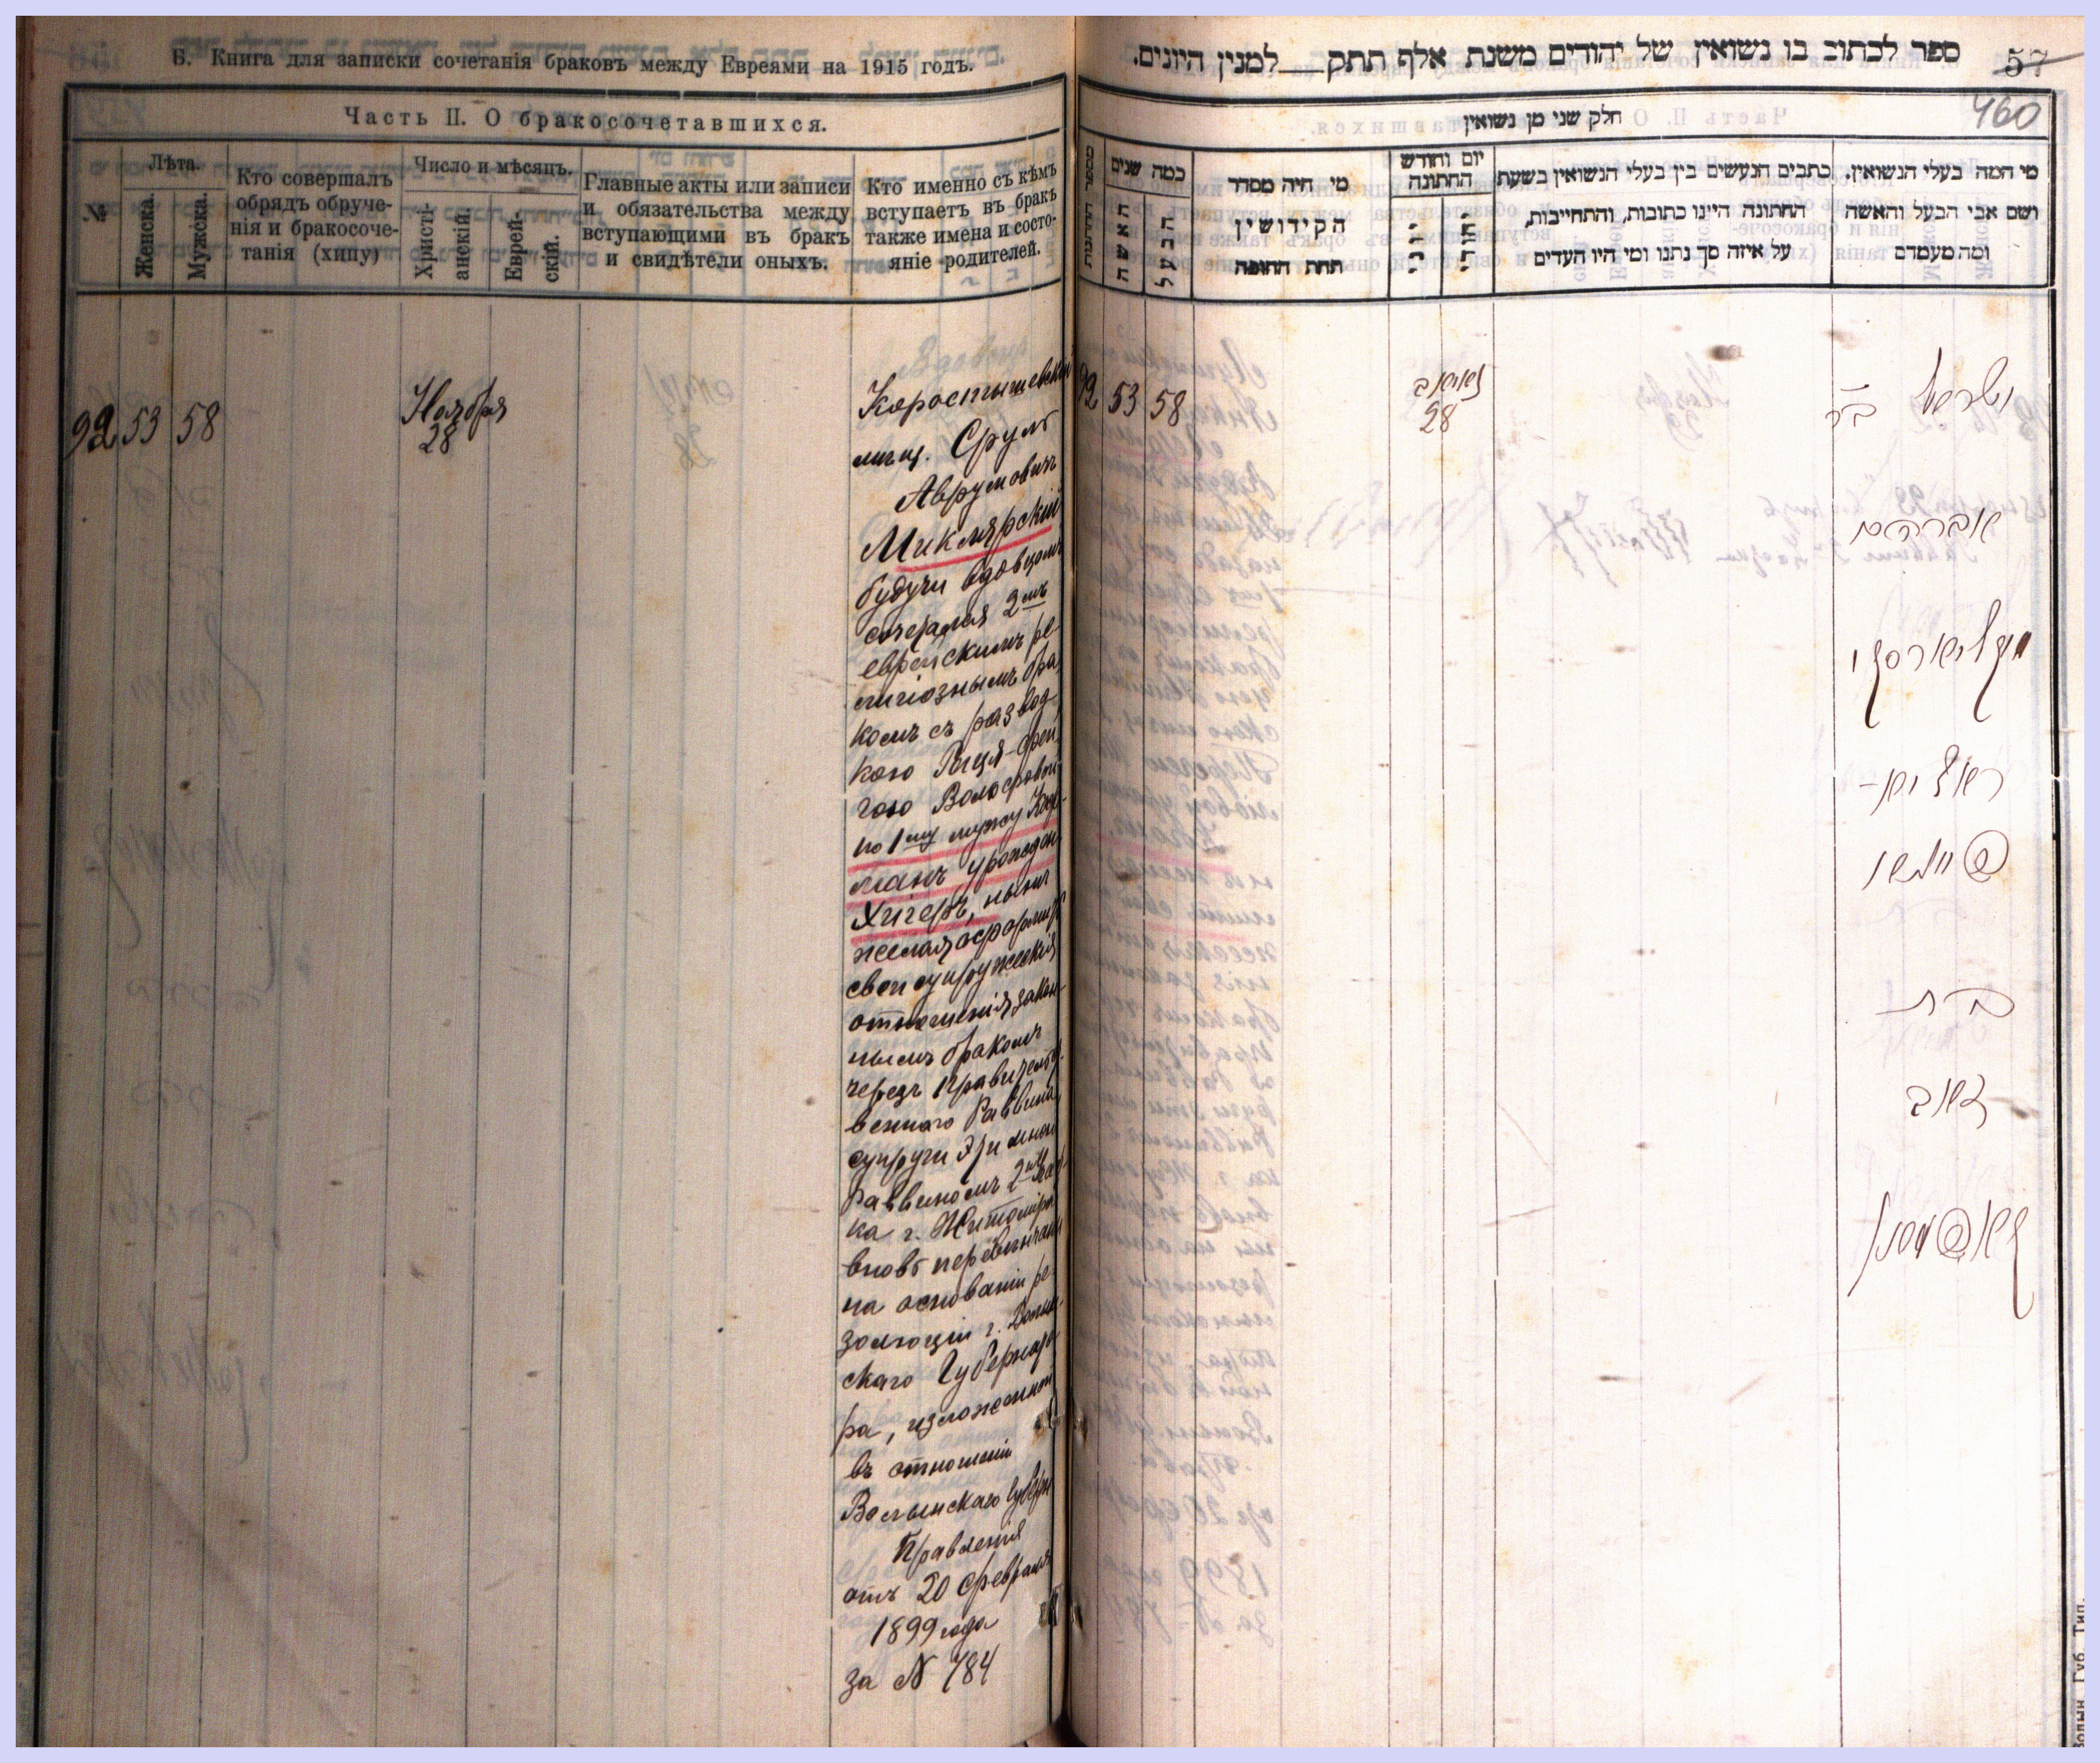 Б. Книга для записки сочетанія браковъ между Евреями на 1915 годъ.
Часть II. О бракосочетавшихся.
№
Лѣта.
Женска.
Мужска.
Кто совершалъ
обрядъ обруче-
нія и бракосоче-
танія (хипу)
Число и мѣсяцъ.
Христі-
анскій.
Еврей-
скій.
Главные акты или записи
и обязательства между
вступающими въ бракъ
и свидѣтели оныхъ.
Кто именно съ кѣмъ
вступаетъ въ бракъ
также имена и состо-
яніе родителей.
92 53 58
Ноября
28
Коростышевскій
мѣщ. Сруль
Аврумовичъ
Миклярскій
будучи вдовцомъ
сочетался 2мъ
еврейскимъ ре-
лигіознымъ бра
комъ съ развод
кою Рыця-Фей
гою Вольфовой
по 1му мужу Кауф-
манъ урожден
Хигеръ, нынѣ
желая оформить
свои супружескія
отношенія закон-
нымъ бракомъ
черезъ Правительст-
веннаго Раввина
супруги эти мною
Раввиномъ 2го участ
ка г. Житоміра
вновь перевѣнчаны
на основаніи ре-
золюціи г. Волын-
скаго Губернато
ра, изложенной
въ отношеніи
Волынскаго Губерн
Правленія
отъ 20 февраля
1899 года
за N 784
ספר לכתוב בו נשואין של יהודים משנת אלף תתק למנין היונים.
57
460
חלק שני מן נשואין
כמה שנים
האשה
הבעל
מי היה מסדר
הקידושין
תחת החופה
יום וחודש
החתונה
כתבים הנעשים בין בעלי הנשואין בשעת
החתונה היינו כתובות, והתחייבות,
על איזה סך נתנו ומי היו העדים
מי המה בעלי הנשואין.
ושם אבי הבעל והאשה
ומה מעמדם
92 53 58
נאיאב
28
ישראל בר
אברהם
מיקליארסקי
פייגא
בת
זאב
קאפמאן
Волын. Губ. Тип.